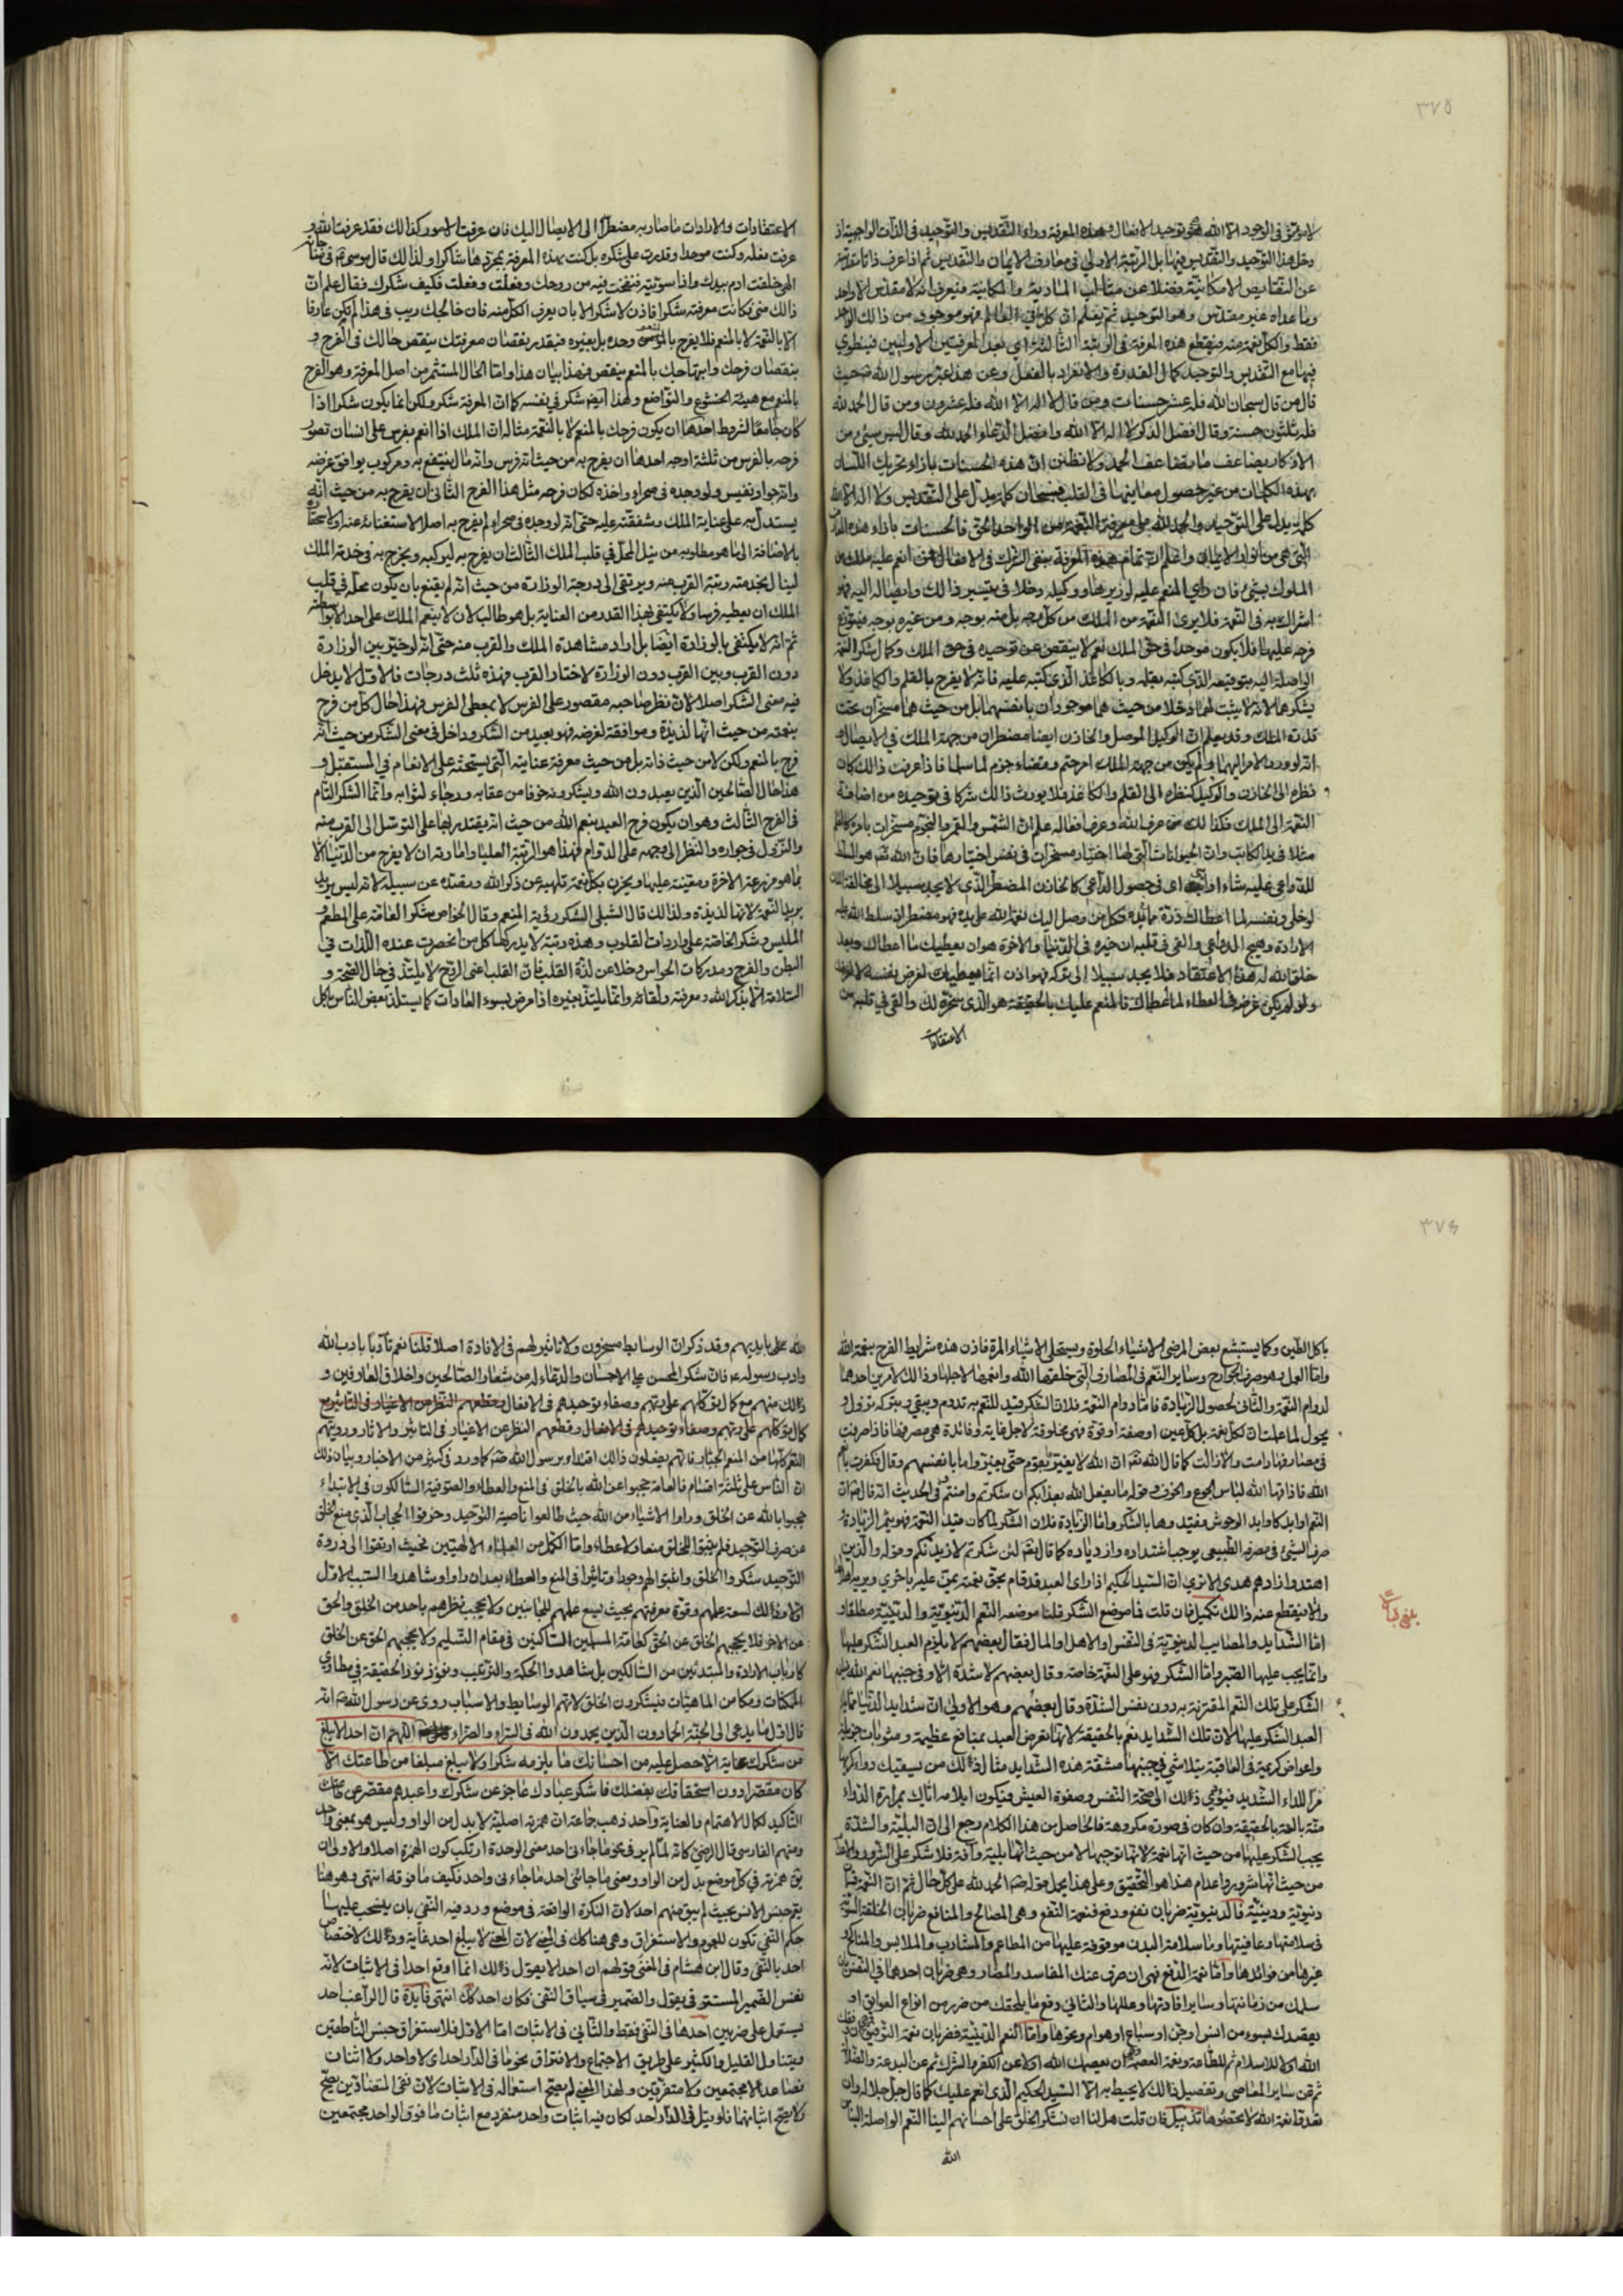 ٣٧٥
لا مؤثر في الوجود الا الله هو توحيد الافعال وهذه المعرفة وراء التقديس والتوحيد في الذات الواجبة اذ
دخل هذا التوحيد والتقديس فيها بل الرتبة الاولى في معارف الايمان والتقديس ثم اذا عرف ذاتا مقدسة
عن النقايص الامكانية فضلا عن مثالب المادية والمكانية فيعرف انه لا مقدس الا واحد
وما عداه غير مقدس وهو التوحيد ثم يعلم ان كل ما في العالم فهو موجود من ذالك الواحد
فقط والكل نعمة منه فيقع هذه المعرفة في الرتبة الثالثة اي بعد المعرفتين الاوليين فينطوي
فيها مع التقديس والتوحيد كمال القدرة والانفراد بالفعل وعن هذا عبر رسول الله ص حيث
قال من قال سبحان الله فله عشر حسنات ومن قال لا اله الا الله فله عشرون ومن قال الحمد لله
فله ثلثون حسنة وقال افضل الذكر لا اله الا الله وافضل الدعاء الحمد لله وقال ليس شيء من
الاذكار يضاعف ما يضاعف الحمد ولا تظنن ان هذه الحسنات بازاء تحريك اللسان
بهذه الكلمات من غير حصول معانيها في القلب فسبحان كلمة تدل على التقديس ولا اله الا الله
كلمة يدل على التوحيد والحمد لله على معرفة النعمة من الواحد الحق فالحسنات بازاء هذه المعارف
التي هي من ابواب الايمان واعلم ان تمام هذه المعرفة ينفي الشرك في الافعال فمن انعم عليه ملك من
الملوك بشيء فان راى المنعم عليه لوزيره او وكيله دخلا في تيسير ذالك وايصاله اليه فهو
اشراك به في النعمة فلا يرى النعمة من الملك من كل وجه بل منه بوجه ومن غيره بوجه فيتوزع
فرحه عليهما فلا يكون موحدا في حق الملك نعم لا ينقص من توحيده في حق الملك وكمال شكره النعمة
الواصلة اليه بتوقيعه الذي كتبه بقلمه وبالكاغذ الذي كتبه عليه فانه لا يفرح بالقلم والكاغذ ولا
يشكرهما لانه لا يثبت لهما دخلا من حيث هما موجودان بانفسهما بل من حيث هما مسخران تحت
قدرة الملك وقد يعلم ان الوكيل الموصل والخازن ايضا مضطران من جهة الملك في الايصال و
انه لو رد الامر اليهما ولم يكن من جهة الملك امر حتم وقضاء جزم لما سلما فاذا عرفت ذالك كان
نظره الى الخازن والوكيل كنظره الى القلم والكاغذ فلا يورث ذالك شركا في توحيده من اضافة
النعمة الى الملك فكذالك من عرف الله وعرف افعاله علم ان الشمس والقمر والنجوم مسخرات بامره كالقلم
مثلا في يد الكاتب وان الحيوانات التي لها اختيار مسخرات في نفس اختيارها فان الله تعم هو المسلط
للدواعي عليه شاء او ابى في حصول الداعي كالخازن المضطر الذي لا يجد سبيلا الى مخالفة الملك
لو خلي ونفسه لما اعطاك ذرة مما في يده فكل من وصل اليك نعمة الله على يده فهو مضطر ان سلط الله عليه
الارادة وهيج الدواعي والقى في قلبه ان خيره في الدنيا والاخرة هو ان يعطيك ما اعطاك وبعد
خلق الله له هذا الاعتقاد فلا يجد سبيلا الى تركه فهو اذن انما يعطيك لغرض نفسه لا لغرضك
ولو لم يكن غرض في العطاء لما اعطاك فالمنعم عليك بالحقيقة هو الذي سخره لك والقى في قلبه من
الاعتقادات
الاعتقادات والارادات ما صار به مضطرا الى الايصال اليك فان عرفت الامور كذالك فقد عرفت الله و
عرفت فعله وكنت موحدا وقدرت على شكره بل كنت بهذه المعرفة بمجردها شاكرا ولذالك قال موسى ع في مناجاته
الهي خلقت ادم بيدك واذا سويته فنفخت فيه من روحك وفعلت وفعلت فكيف شكرك فقال علم ان
ذالك مني فكانت معرفته شكرا فاذن لا شكر الا بان يعرف الكل منه فان خالجك ريب في هذا لم تكن عارفا
لا بالنعمة ولا بالمنعم فلا يفرح بالمنعم وحده بل بغيره فبقدر نقصان معرفتك ينقص حالك في الفرح و
بنقصان فرحك وابتهاجك بالمنعم ينقص فهذا بيان هذا واما الحال المستثمر من اصل المعرفة وهو الفرح
بالمنعم مع هيئة الخشوع والتواضع ولهذا ايضا شكر في نفسه كما ان المعرفة شكر ولكن انما يكون شكرا اذا
كان جامعا لشروط احدها ان يكون فرحك بالمنعم لا بالنعمة مثاله ان الملك اذا انعم بفرس على انسان تصور
فرحه بالفرس من ثلثة اوجه احدها ان يفرح به من حيث انه فرس وانه مال ينتفع به ومركوب يوافق غرضه
وانه جواد نفيس ولو وجده في صحراء واخذه لكان فرحه مثل هذا الفرح الثاني ان يفرح به من حيث انه
يستدل به على عناية الملك وشفقته عليه حتى انه لو وجده في صحراء لم يفرح به اصلا لاستغنائه عنه او لاستحقاره
بالاضافة الى ما هو مطلوبه من نيل المحل في قلب الملك الثالث ان يفرح به ليركبه ويخرج به في خدمة الملك
لينال بخدمته رتبة القرب منه ويرتقي الى درجة الوزارة من حيث انه لم يقنع بان يكون محله في قلب
الملك ان يعطيه فرسا ولا يكتفي بهذا القدر من العناية بل هو طالب لان لا ينعم الملك على احد الا بواسطته
ثم انه لا يكتفي بالوزارة ايضا بل اراد مشاهدة الملك والقرب منه حتى انه لو خير بين الوزارة
دون القرب وبين القرب دون الوزارة لاختار القرب فهذه ثلث درجات فالاول لا يدخل
فيه معنى الشكر اصلا لان نظر صاحبه مقصور على الفرس لا بمعطي الفرس فهذا حال كل من فرح
بنعمة من حيث انها لذيذة وموافقة لغرضه فهو بعيد من الشكر وداخل في معنى الشكر من حيث انه
فرح بالمنعم ولكن لا من حيث ذاته بل من حيث معرفة عنايته التي يستحثه على الانعام في المستقبل و
هذا حال الصالحين الذين يعبدون الله ويشكرونه خوفا من عقابه ورجاء لثوابه وانما الشكر التام
في الفرح الثالث وهو ان يكون فرح العبد بنعم الله من حيث انه يقتدر بها على التوسل الى القرب منه
والنزول في جواره والنظر الى وجهه على الدوام فهذا هو الرتبة العليا وامارته ان لا يفرح من الدنيا الا
بما هو مزرعة الاخرة ومعينة عليها ويحزن بكل نعمة تلهيه عن ذكر الله وتصده عن سبيله لانه ليس يريد
يريد النعمة لانها لذيذة ولذالك قال الشبلي الشكر رؤية المنعم وقال الخواص شكر العامة على المطعم و
الملبس وشكر الخاصة على واردات القلوب وهذه رتبة لا يدركها كل من انحصرت عنده اللذات في
البطن والفرج ومدركات الحواس وخلا عن لذة القلب فان القلب اعني الروح لا يلتذ في حال الصحة و
السلامة الا بذكر الله ومعرفته ولقائه وانما يلتذ بغيره اذا مرض بسوء العادات كما يستلذ بعض الناس باكل
٣٧٦
باكل الطين وكما يستبشع بعض المرضى الاشياء الحلوة ويستحلي الاشياء المرة فاذن هذه شرايط الفرح بنعمة الله
واما العمل فهو صرف الجوارح وساير النعم في المصارف التي خلقها الله وانعمها لاجلها وذالك لامرين احدهما
لدوام النعمة والثاني لحصول الزيادة فاما دوام النعمة فلان الشكر قيد للنعم به تدوم ويبقى وبتركه تزول و
يحول لما علمت ان لكل نعمة بل كل عين او صفة او قوة فهي مخلوقة لاجل غاية وفائدة هي مصرفها فاذا صرفت
في مصارفها دامت والا زالت كما قال الله تعم ان الله لا يغير ما بقوم حتى يغيروا ما بانفسهم وقال فكفرت بانعم
الله فاذاقها الله لباس الجوع والخوف وقوله ما يفعل الله بعذابكم ان شكرتم وامنتم وفي الحديث انه قال ص ان
النعم اوابد كاوابد الوحوش فقيدوها بالشكر واما الزيادة فلان الشكر لما كان قيد النعمة فهو يثمر الزيادة و
صرف الشيء في مصرفه الطبيعي يوجب اشتداده وازدياده كما قال تعم لئن شكرتم لازيدنكم وقوله والذين
اهتدوا زادهم هدى الا ترى ان السيد الحكيم اذا راى العبد قد قام بحق نعمة يمن عليه باخرى ويريه اهلا لها
والا فيقطع عنه ذالك تكميل فان قلت فما موضع الشكر قلنا موضعه النعم الدنيوية والدينية مطلقا و
اما الشدايد والمصايب الدنيوية في النفس او الاهل والمال فقال بعضهم لا يلزم العبد الشكر عليها
وانما يجب عليها الصبر واما الشكر فهو على النعمة خاصة وقال بعضهم لا شدة الا وفي جنبها نعم الله
الشكر على تلك النعم المقترنة به دون نفس الشدة وقال بعضهم وهو الاولى ان شدايد الدنيا مما يلزم
العبد الشكر عليها لان تلك الشدايد نعم بالحقيقة لانها تعرض العبد بمنافع عظيمة ومثوبات جزيلة
واعواض كريمة في العاقبة يتلاشى في جنبها مشقة هذه الشدايد مثال ذالك من يسقيك دواء كريها
مرا للداء الشديد فيؤدي ذالك الى صحة النفس وصفوة العيش فيكون ايلامه اياك بمرارة الدواء
منة بالغة بالحقيقة وان كان في صورة مكروهة فالحاصل من هذا الكلام رجع الى ان البلية والشدة
يجب الشكر عليها من حيث انها نعمة لانها توجبها لا من حيث انها بلية وافة فلا شكر على الشرور والاعدام
من حيث انها شرور واعدام هذا هو التحقيق وعلى هذا يحمل قوله ص الحمد لله على كل حال ثم ان النعمة قسمان
دنيوية ودينية فالدنيوية ضربان نفع ودفع فنعمة النفع وهي المصالح والمنافع ضربان الخلقة السوية
في سلامتها وعافيتها وما سلامة البدن موقوفة عليها من المطاعم والمشارب والملابس والمناكح و
غيرها من فوائدها واما نعمة الدفع فهي ان صرف عنك المفاسد والمضار وهي ضربان احدهما في النفس بان
سلمك من زمانتها وساير افاتها وعللها والثاني دفع ما يلحقك من ضرر من انواع العوايق او
يقصدك بسوء من انس او جن او سباع او هوام ونحوها واما النعم الدينية فضربان نعمة التوفيق بان وفقك
الله اولا للاسلام ثم للطاعة ونعمة العصمة بان يعصمك الله اولا عن الكفر والشرك ثم عن البدعة والضلالة
ثم عن ساير المعاصي وتفصيل ذالك لا يحيط به الا السيد الحكيم الذي انعم عليك كما قال جل جلاله وان
تعدوا نعمة الله لا تحصوها تذييل فان قلت هل لنا ان نشكر الخلق على احسانهم الينا النعم الواصلة الينا من
الله
الله على ايديهم وقد ذكر ان الوسايط مسخرون ولا تاثير لهم في الافادة اصلا قلنا نعم تادبا بادب الله
وادب رسوله ع فان شكر المحسن على الاحسان والدعاء له من شعار الصالحين واخلاق العارفين و
ذالك منهم مع كمال توكلهم على ربهم وصفاء توحيدهم في الافعال وقطعهم النظر من الاغيار في التاثير مع
كمال توكلهم على ربهم وصفاء توحيدهم في الافعال وقطعهم النظر عن الاغيار في التاثير والاثار ورؤيتهم
النعم كلها من المنعم الجبار فانهم يفعلون ذالك اقتداء برسول الله ص كما ورد في كثير من الاخبار وبيان ذلك
ان الناس على ثلثة اقسام فالعامة حجبوا عن الله بالخلق في المنع والعطاء والصوفية السالكون في الابتداء
حجبوا بالله عن الخلق وراوا الاشياء من الله حيث طالعوا ناصية التوحيد وخرقوا الحجاب الذي منع الخلق
عن صرف التوحيد فلم يثبتوا للخلق منعا ولا عطاء واما الكمل من العلماء الالهيين فحيث ارتقوا الى ذروة
التوحيد شكروا الخلق واثبتوا لهم وجودا وتاثيرا في المنع والعطاء بعد ان راوا وشاهدوا المسبب الاول
اولا وذالك لسعة علمهم وقوة معرفتهم بحيث يسع علمهم للجانبين ولا يحجب نظرهم باحد من الخلق والحق
عن الاخر فلا يحجبهم الخلق عن الحق كعامة المسلمين الساكنين في مقام التسليم ولا يحجبهم الحق عن الخلق
كارباب الارادة والمبتدئين من السالكين بل شاهدوا الحكمة والترغيب ونفوذ نور الحقيقة في مطاوي
الممكنات ومكامن الماهيات فيشكرون الخلق لانهم الوسايط والاسباب روى عن رسول الله ص انه
قال اول ما يدعى الى الجنة الحمادون الذين يحمدون الله في السراء والضراء اللهم ان احدا لا يبلغ
من شكرك غاية الا حصل عليه من احسانك ما يلزمه شكرا ولا يبلغ مبلغا من طاعتك الا
كان مقصرا دون استحقاقك بفضلك فاشكر عبادك عاجز عن شكرك واعبدهم مقصر عن طاعتك
التاكيد لكمال الاهتمام والعناية واحد ذهب جماعة ان همزته اصلية لا بدل من الواو وليس هو بمعنى واحد
ومنهم الفارسي قال الرضي كانه لما لم ير في نحو ما جاءني احد معنى الوحدة ارتكب كون الهمزة اصلا والاولى ان
يق همزته في كل موضع بدل من الواو ومعنى ما جاءني احد ما جاءني واحد فكيف ما فوقه انتهى وهو هنا
يعم جنس الانس بحيث لم يبق منهم احد لان النكرة الواقعة في موضع ورد فيه النفي بان ينسحب عليها
حكم النفي تكون للعموم والاستغراق وهي هنا كك في المعنى لان المعنى لا يبلغ احد غاية وذالك لاختصاص
احد بالنفي وقال ابن هشام في المغني قولهم ان احدا لا يقول ذالك انما اوقع احدا في الاثبات لانه
نفس الضمير المستتر في يقول والضمير في سياق النفي فكان احد كك انتهى فايدة قال الراغب احد
يستعمل على ضربين احدهما في النفي فقط والثاني في الاثبات اما الاول فلاستغراق جنس الناطقين
ويتناول القليل والكثير على طريق الاجتماع والافتراق نحو ما في الدار احد اي لا واحد ولا اثنان
فصاعدا لا مجتمعين ولا متفرقين ولهذا المعنى لم يصح استعماله في الاثبات لان نفي المتضادين يصح
ولا يصح اثباتهما فلو قيل في الدار احد لكان فيه اثبات واحد منفرد مع اثبات ما فوق الواحد مجتمعين